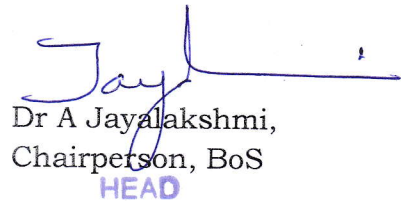 Jay
Dr A Jayalakshmi,
Chairperson, BoS
HEAD